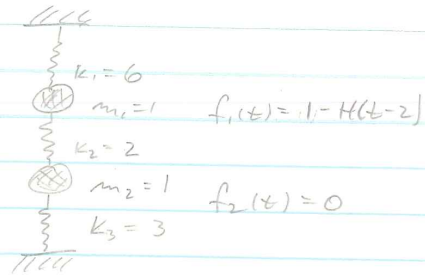 k₁ = 6
m₁ = 1 f₁(t) = 1 - H(t-2)
k₂ = 2
m₂ = 1 f₂(t) = 0
k₃ = 3